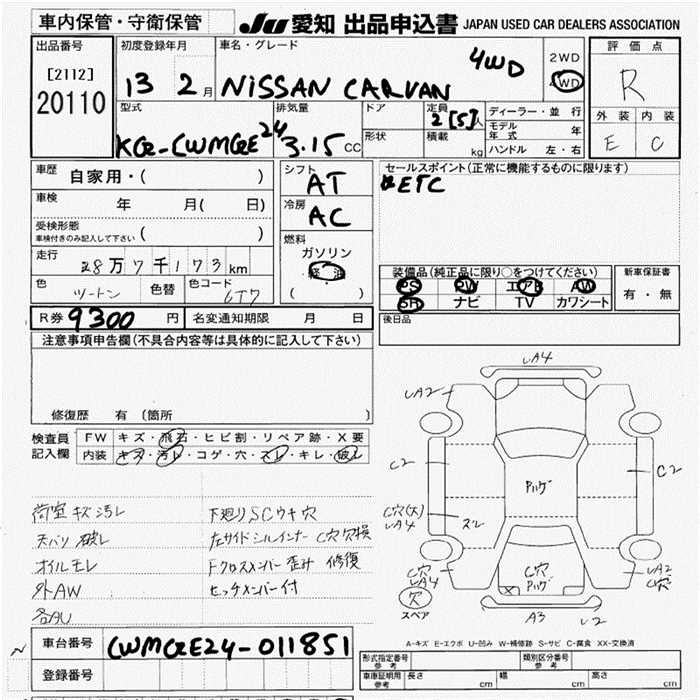 車内保管・守衛保管
JU 愛知 出品申込書 JAPAN USED CAR DEALERS ASSOCIATION
出品番号
[2112]
20110
初度登録年月
13 2月
車名・グレード
NISSAN CARVAN 4WD
2WD
4WD
評価点
R
外装 内装
E C
型式
KG-CWMGE24
排気量
3.15 CC
ドア
形状
定員
2[5]人
積載
kg
ディーラー・並行
モデル年式 年
ハンドル 左・右
車歴
自家用・( )
車検
年 月( 日)
受検形態
車検付きのみ記入して下さい ( )
走行
28万7千173km
色
ツートン
色替
色コード
6T7
シフト
AT
冷房
AC
燃料
ガソリン
軽油
( )
セールスポイント(正常に機能するものに限ります)
ETC
装備品(純正品に限り○をつけてください)
PS PW エアB AW
SR ナビ TV カワシート
新車保証書
有・無
R券 9300 円
名変通知期限 月 日
後日品
注意事項申告欄(不具合内容等は具体的に記入して下さい)
修復歴 有(箇所 )
検査員記入欄
FW キズ・飛石・ヒビ割・リペア跡・X要
内装 キズ・汚レ・コゲ・穴・スレ・キレ・破レ
荷室 キズ 汚レ
天バリ 破レ
オイルモレ
外AW
各AU
下廻りSCウキ穴
左サイドシルインナーC穴欠損
Fクロスメンバー歪ミ 修復
ヒッチメンバー付
UA4
UA2
C2
C2
Pハゲ
C穴(大)
UA4
スレ
C穴
UA4
穴
スペア
C穴
Pハゲ
UA2
C穴
A3
U2
A-キズ E-エクボ U-凹み W-補修跡 S-サビ C-腐食 XX-交換済
車台番号
CWMGE24-011851
登録番号
形式指定番号 参考
類別区分番号 参考
車庫証明用 参考
長さ cm
幅 cm
高さ cm